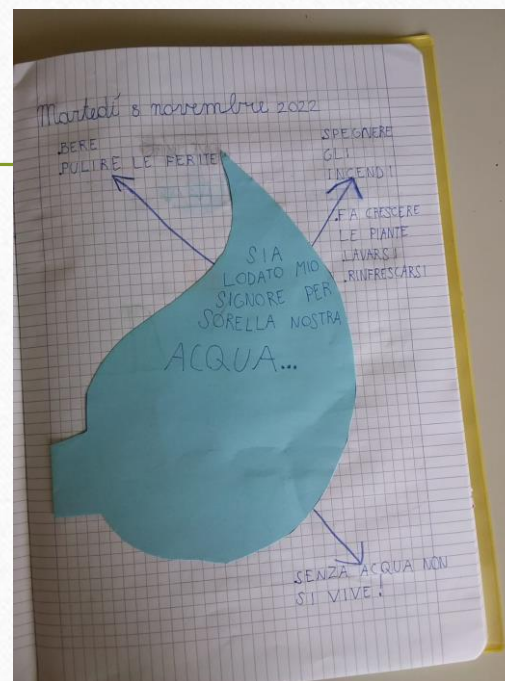 Martedí 8 novembre 2022
.BERE
.PULIRE LE FERITE
SPEGNERE
GLI
INCENDI
.FA CRESCERE
LE PIANTE
.LAVARSI
.RINFRESCARSI
SIA
LODATO MIO
SIGNORE PER
SORELLA NOSTRA
ACQUA...
SENZA ACQUA NON
SI VIVE!